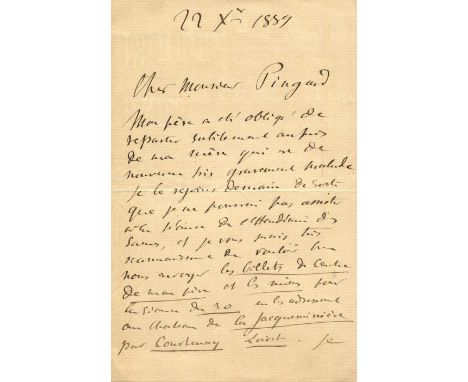 22 Xbre 1889
Cher Monsieur Pingard
Mon père a été obligé de
repartir subitement auprès
de ma mère qui est de
nouveau très gravement malade
je le rejoins demain de sorte
que je ne pourrai pas assister
votre séance de l'Académie des
et je vous serais très
reconnaissant de vouloir bien
nous envoyer les billets de centre
de mon père et les miens pour
la séance du 30 en les adressant
au chateau de la Jacqueminière
par Courtenay Loiret. Je